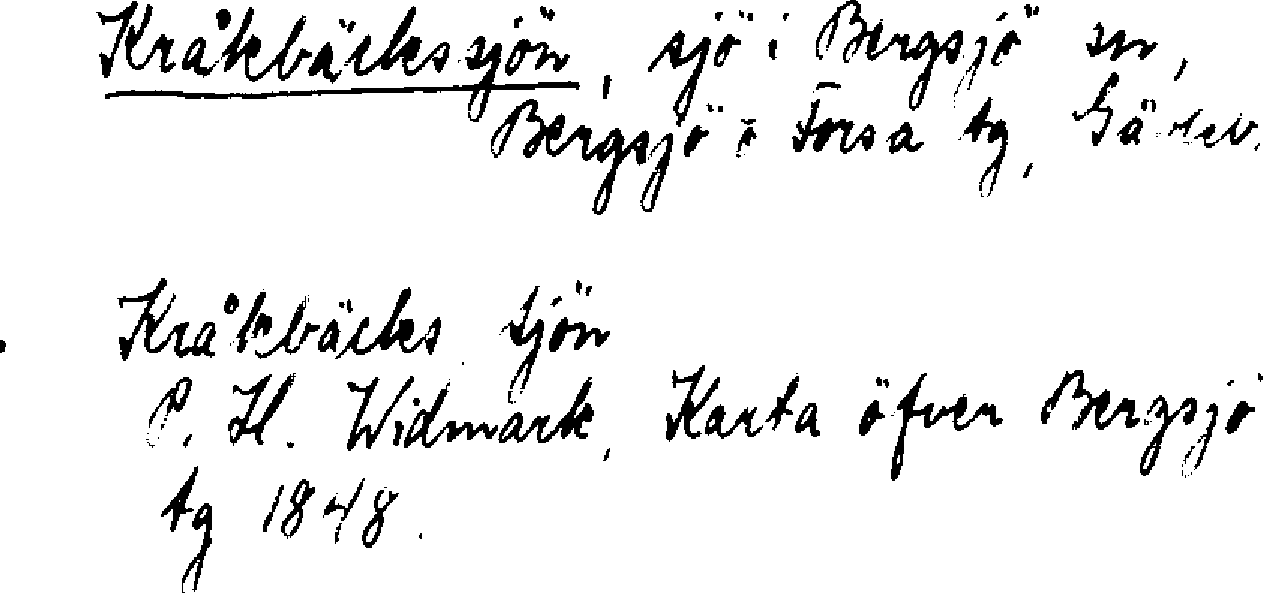 Kråkbäckssjön, sjö i Bergsjö sn,
Bergsjö o Forsa tg, Gävleb.
Kråkbäcks sjön
P. H. Widmark, Karta öfver Bergsjö
tg 1848.